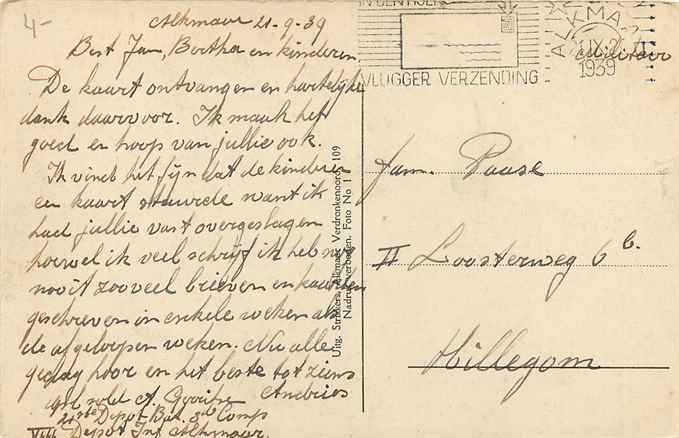 4-
Alkmaar 21-9-39
Best Jan, Bertha en kinderen
De kaart ontvangen en hartelijke
dank daarvoor. Ik maak het
goed en hoop van jullie ook.
Ik vind het fijn dat de kinderen
een kaart stuurde want ik
had jullie vast overgeslagen
hoewel ik veel schrijf ik heb nog
nooit zooveel brieven en kaarten
geschreven in enkele weken als
de afgeloopen weken. Nu alle
gedag hoor en het beste tot ziens
Andries
Depot Bat. 3de Comp
Depot Inf. Alkmaar.
Uitg. Alkmaar, Verdronkenoord 109
Nadruk verboden. Foto No 1
VLUGGER VERZENDING
ALKMAAR
1939
militair
Fam. Paase
II Loosterweg 6b.
Hillegom